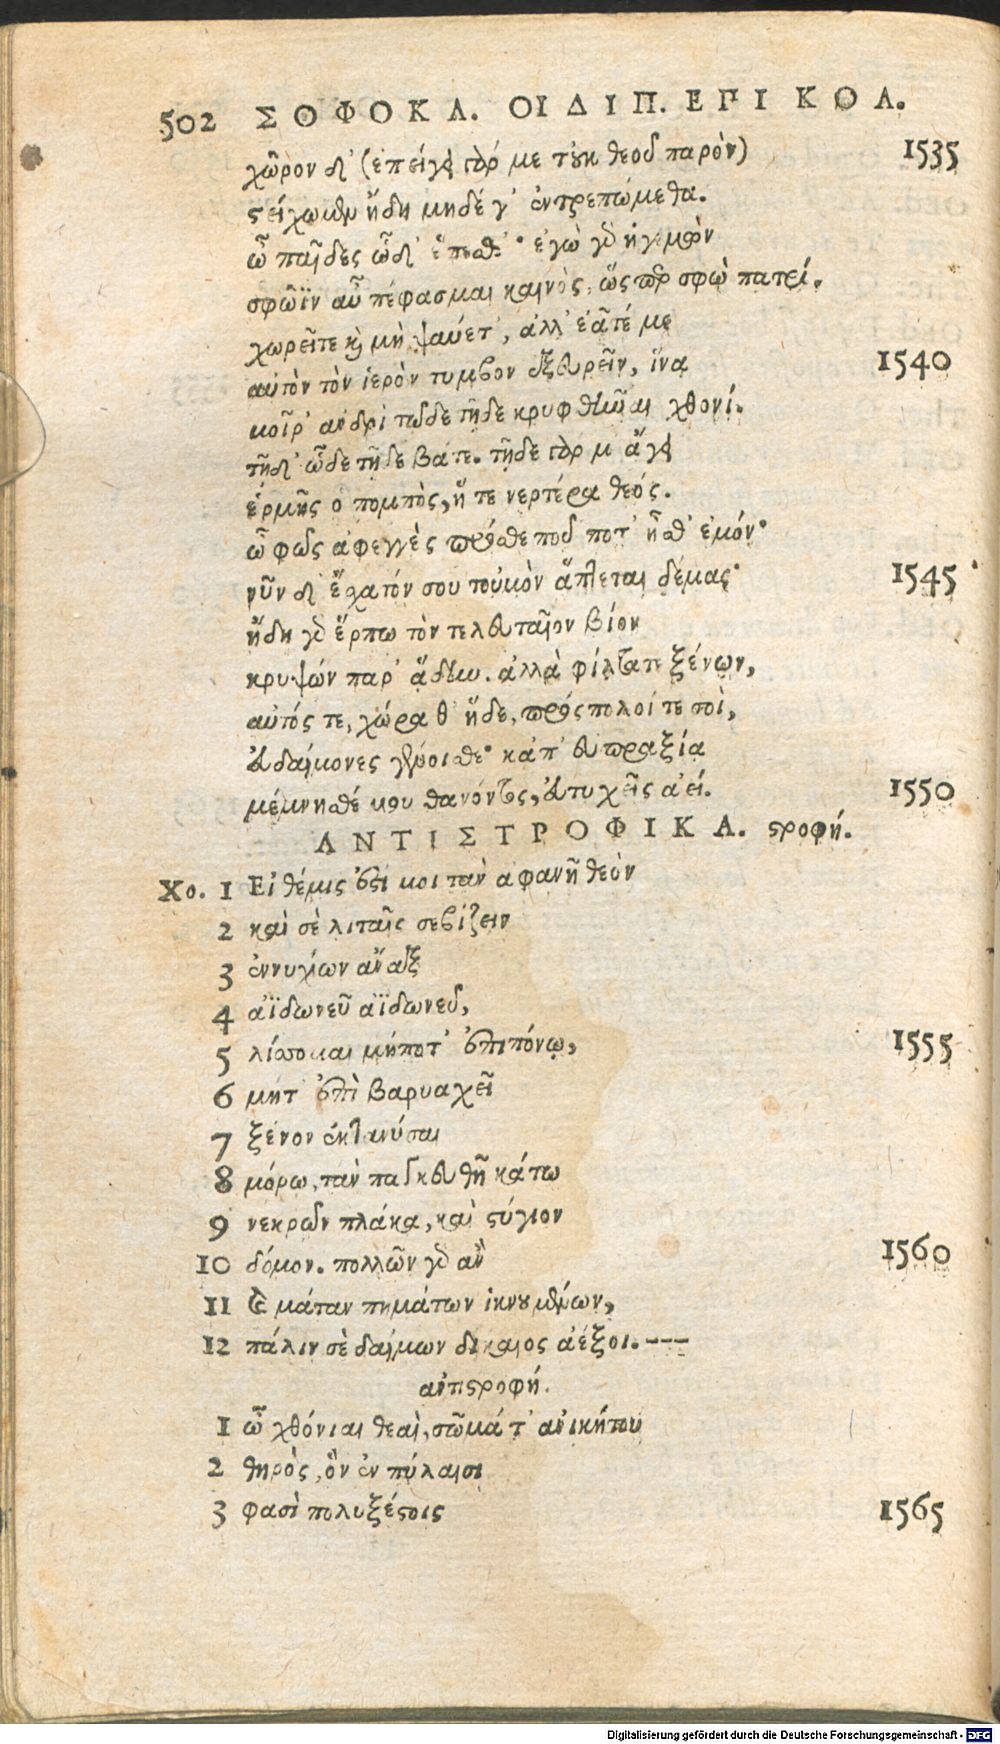 502 ΣΟΦΟΚΛ. ΟΙΔΙΠ. ΕΠΙ ΚΟΛ.
χῶρον δ' (ἐπείγει γάρ με τοὐκ θεοῦ παρὸν) 1535
στείχωμεν ἤδη μηδέ γ' ἐντρεπώμεθα.
ὦ παῖδες ὧδ' ἕπεσθ'· ἐγὼ γὰρ ἡγεμὼν
σφῶϊν αὖ πέφασμαι καινὸς, ὥσπερ σφὼ πατρί.
χωρεῖτε καὶ μὴ ψαύετ', ἀλλ' ἐᾶτέ με
αὐτὸν τὸν ἱερὸν τύμβον ἐξευρεῖν, ἵνα 1540
μοῖρ' ἀνδρὶ τῷδε τῇδε κρυφθῆναι χθονί.
τῇδ' ὧδε τῇδε βᾶτε. τῇδε γάρ μ' ἄγει
ἑρμῆς ὁ πομπὸς, ἥ τε νερτέρα θεός.
ὦ φῶς ἀφεγγὲς πρόσθε ποῦ ποτ' ἦσθ' ἐμόν·
νῦν δ' ἔσχατόν σου τοὐμὸν ἅπτεται δέμας· 1545
ἤδη γὰρ ἕρπω τὸν τελευταῖον βίον
κρυψών παρ' ᾅδην. ἀλλὰ φίλτατε ξένων,
αὐτός τε, χώρα θ' ἥδε, πρόσπολοί τε σοὶ,
εὐδαίμονες γένοισθε· κἀπ' εὐπραξίᾳ
μέμνησθέ μου θανόντος, εὐτυχεῖς ἀεί. 1550
ΑΝΤΙΣΤΡΟΦΙΚΑ. στροφή.
Χο. 1 Εἰ θέμις ἐστί μοι τὰν ἀφανῆ θεὸν
2 καὶ σὲ λιταῖς σεβίζειν
3 ἐννυχίων ἄναξ
4 αἰδωνεῦ αἰδωνεῦ,
5 λίσσομαι μήποτ' ἐπιπόνῳ, 1555
6 μήτ' ἐπὶ βαρυαχεῖ
7 ξένον ἐκτανύσαι
8 μόρῳ, τὰν παγκευθῆ κάτω
9 νεκρῶν πλάκα, καὶ στύγιον
10 δόμον. πολλῶν γὰρ ἂν 1560
11 καὶ μάταν πημάτων ἱκνουμένων,
12 πάλιν σὲ δαίμων δίκαιος ἀέξοι.---
ἀντιστροφή.
1 ὦ χθόνιαι θεαὶ, σῶμά τ' ἀνικήτου
2 θηρὸς, ὃν ἐν πύλαισι
3 φασὶ πολυξέστοις 1565
Digitalisierung gefördert durch die Deutsche Forschungsgemeinschaft - DFG